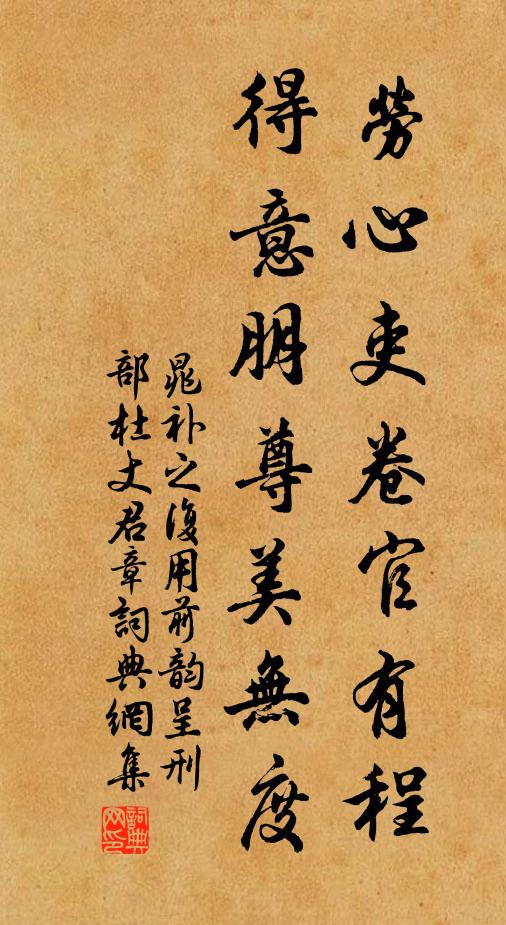 勞心吏卷官有程
得意朋尊美無度
晁补之復用前韵呈刑
部杜丈君章詞典網集
詞典
网印